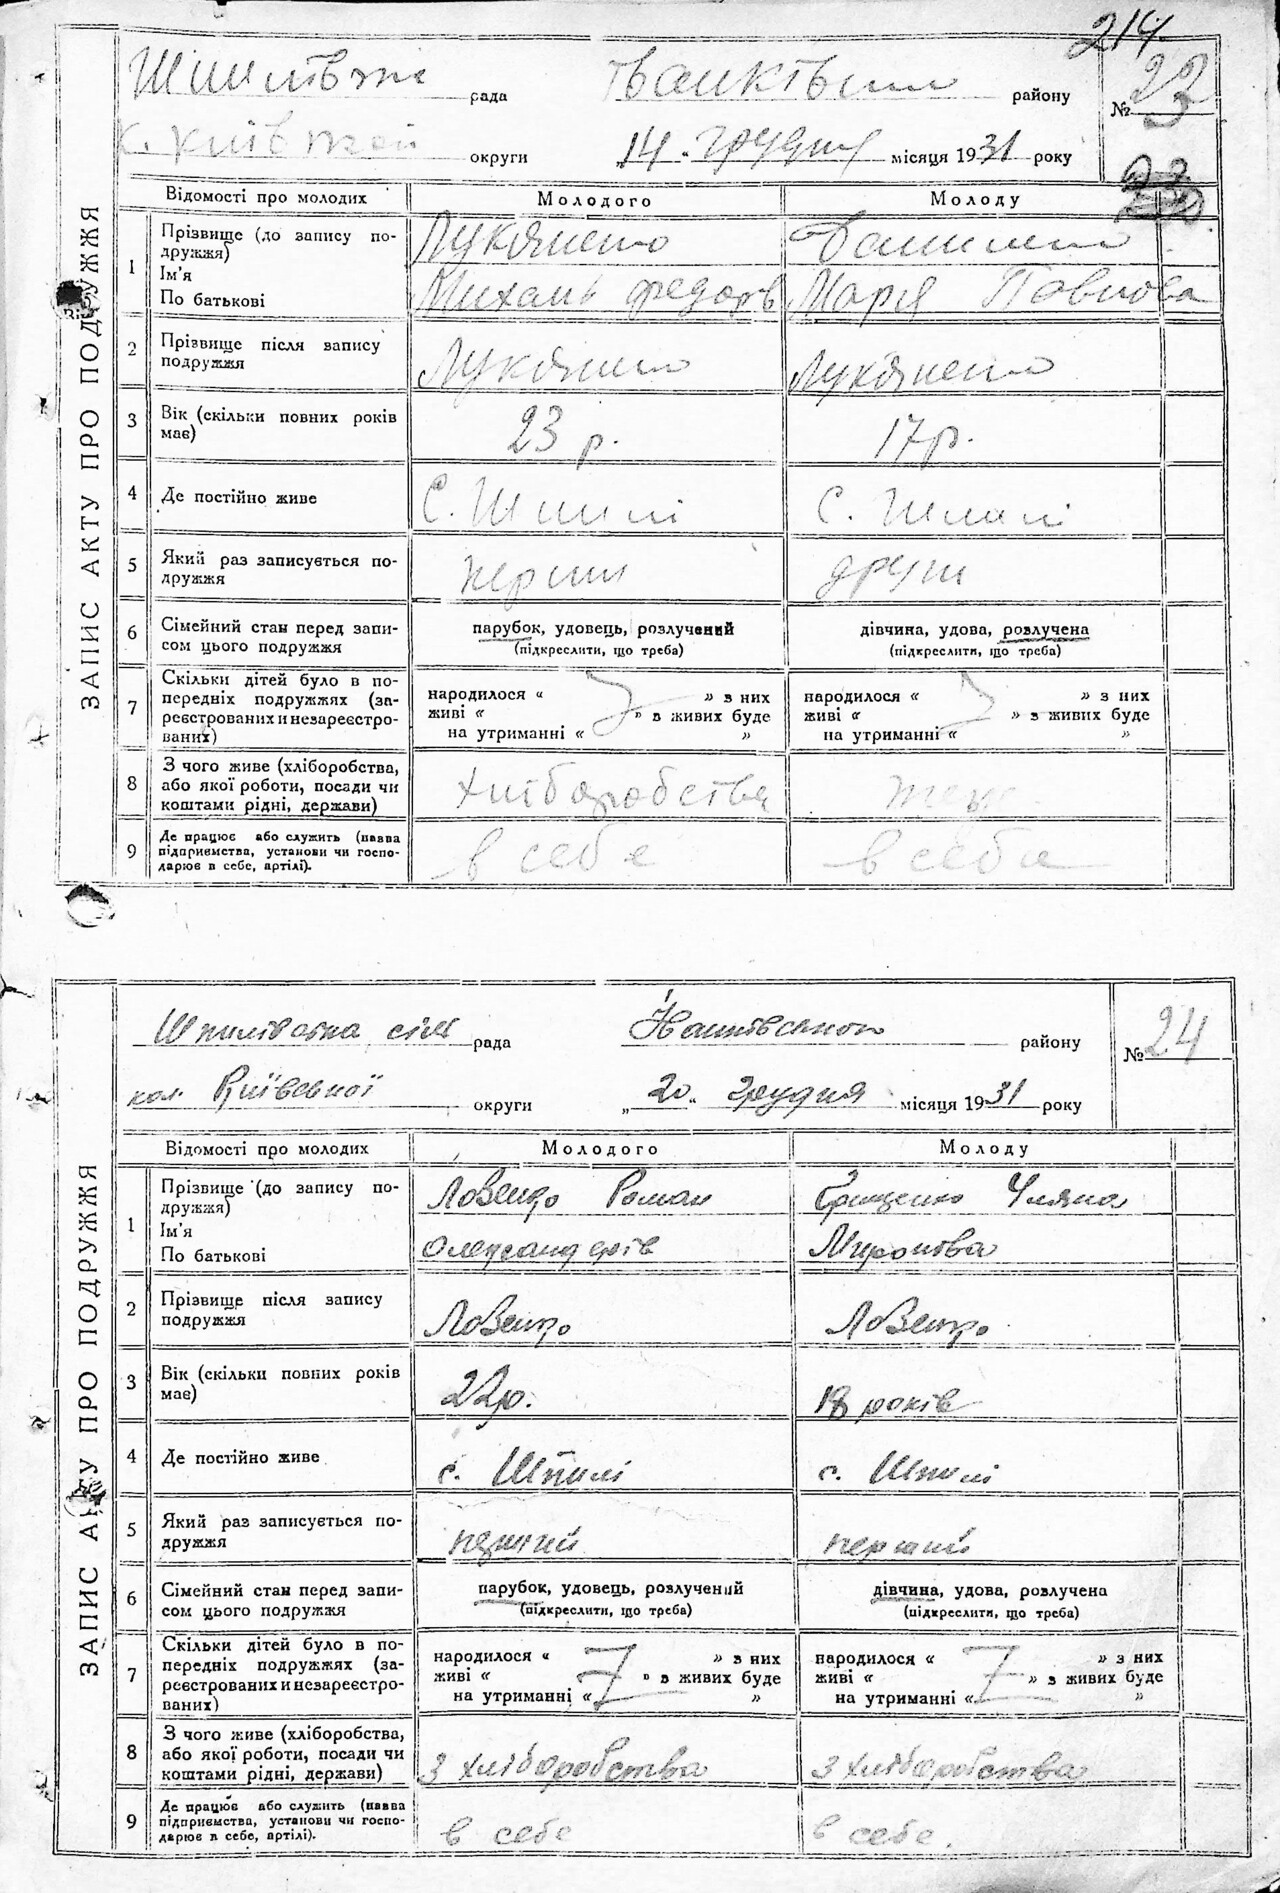 214.
ЗАПИС АКТУ ПРО ПОДРУЖЖЯ
рада
району
№ 23
к. Київської округи
„14" грудня місяця 1931 року
23
Відомості про молодих
Молодого
Молоду
1
Прізвище (до запису по-
дружжя)
Ім'я
По батькові
Лукяненко
Михаил Федорів
Даниленко
Марія Павлова
2
Прізвище після запису
подружжя
Лукяненко
Лукяненко
3
Вік (скільки повних років
має)
23 р.
17 р.
4
Де постійно живе
С. Шпилі
С. Шпилі
5
Який раз записується по-
дружжя
перший
другий
6
Сімейний стан перед запи-
сом цього подружжя
парубок, удовець, розлучений
(підкреслити, що треба)
дівчина, удова, розлучена
(підкреслити, що треба)
7
Скільки дітей було в по-
передніх подружжях (за-
реєстрованих и незареєстро-
ваних)
народилося « » з них
живі « » в живих буде
на утриманні « »
народилося « » з них
живі « » в живих буде
на утриманні « »
8
З чого живе (хліборобства,
або якої роботи, посади чи
коштами рідні, держави)
хліборобства
теж
9
Де працює або служить (назва
підприємства, установи чи госпо-
дарює в себе, артілі).
в себе
в себе
ЗАПИС АКТУ ПРО ПОДРУЖЖЯ
Шпилівська сіль рада
району
№ 24
кол. Київської округи
„20" грудня місяця 1931 року
Відомості про молодих
Молодого
Молоду
1
Прізвище (до запису по-
дружжя)
Ім'я
По батькові
Ловейко Роман
Олександрів
Грищенко Уляна
Миронова
2
Прізвище після запису
подружжя
Ловейко
Ловейко
3
Вік (скільки повних років
має)
22 р.
18 років
4
Де постійно живе
с. Шпилі
с. Шпилі
5
Який раз записується по-
дружжя
перший
перший
6
Сімейний стан перед запи-
сом цього подружжя
парубок, удовець, розлучений
(підкреслити, що треба)
дівчина, удова, розлучена
(підкреслити, що треба)
7
Скільки дітей було в по-
передніх подружжях (за-
реєстрованих и незареєстро-
ваних)
народилося « » з них
живі « » в живих буде
на утриманні « »
народилося « » з них
живі « » в живих буде
на утриманні « »
8
З чого живе (хліборобства,
або якої роботи, посади чи
коштами рідні, держави)
З хліборобства
З хліборобства
9
Де працює або служить (назва
підприємства, установи чи госпо-
дарює в себе, артілі).
в себе
в себе.